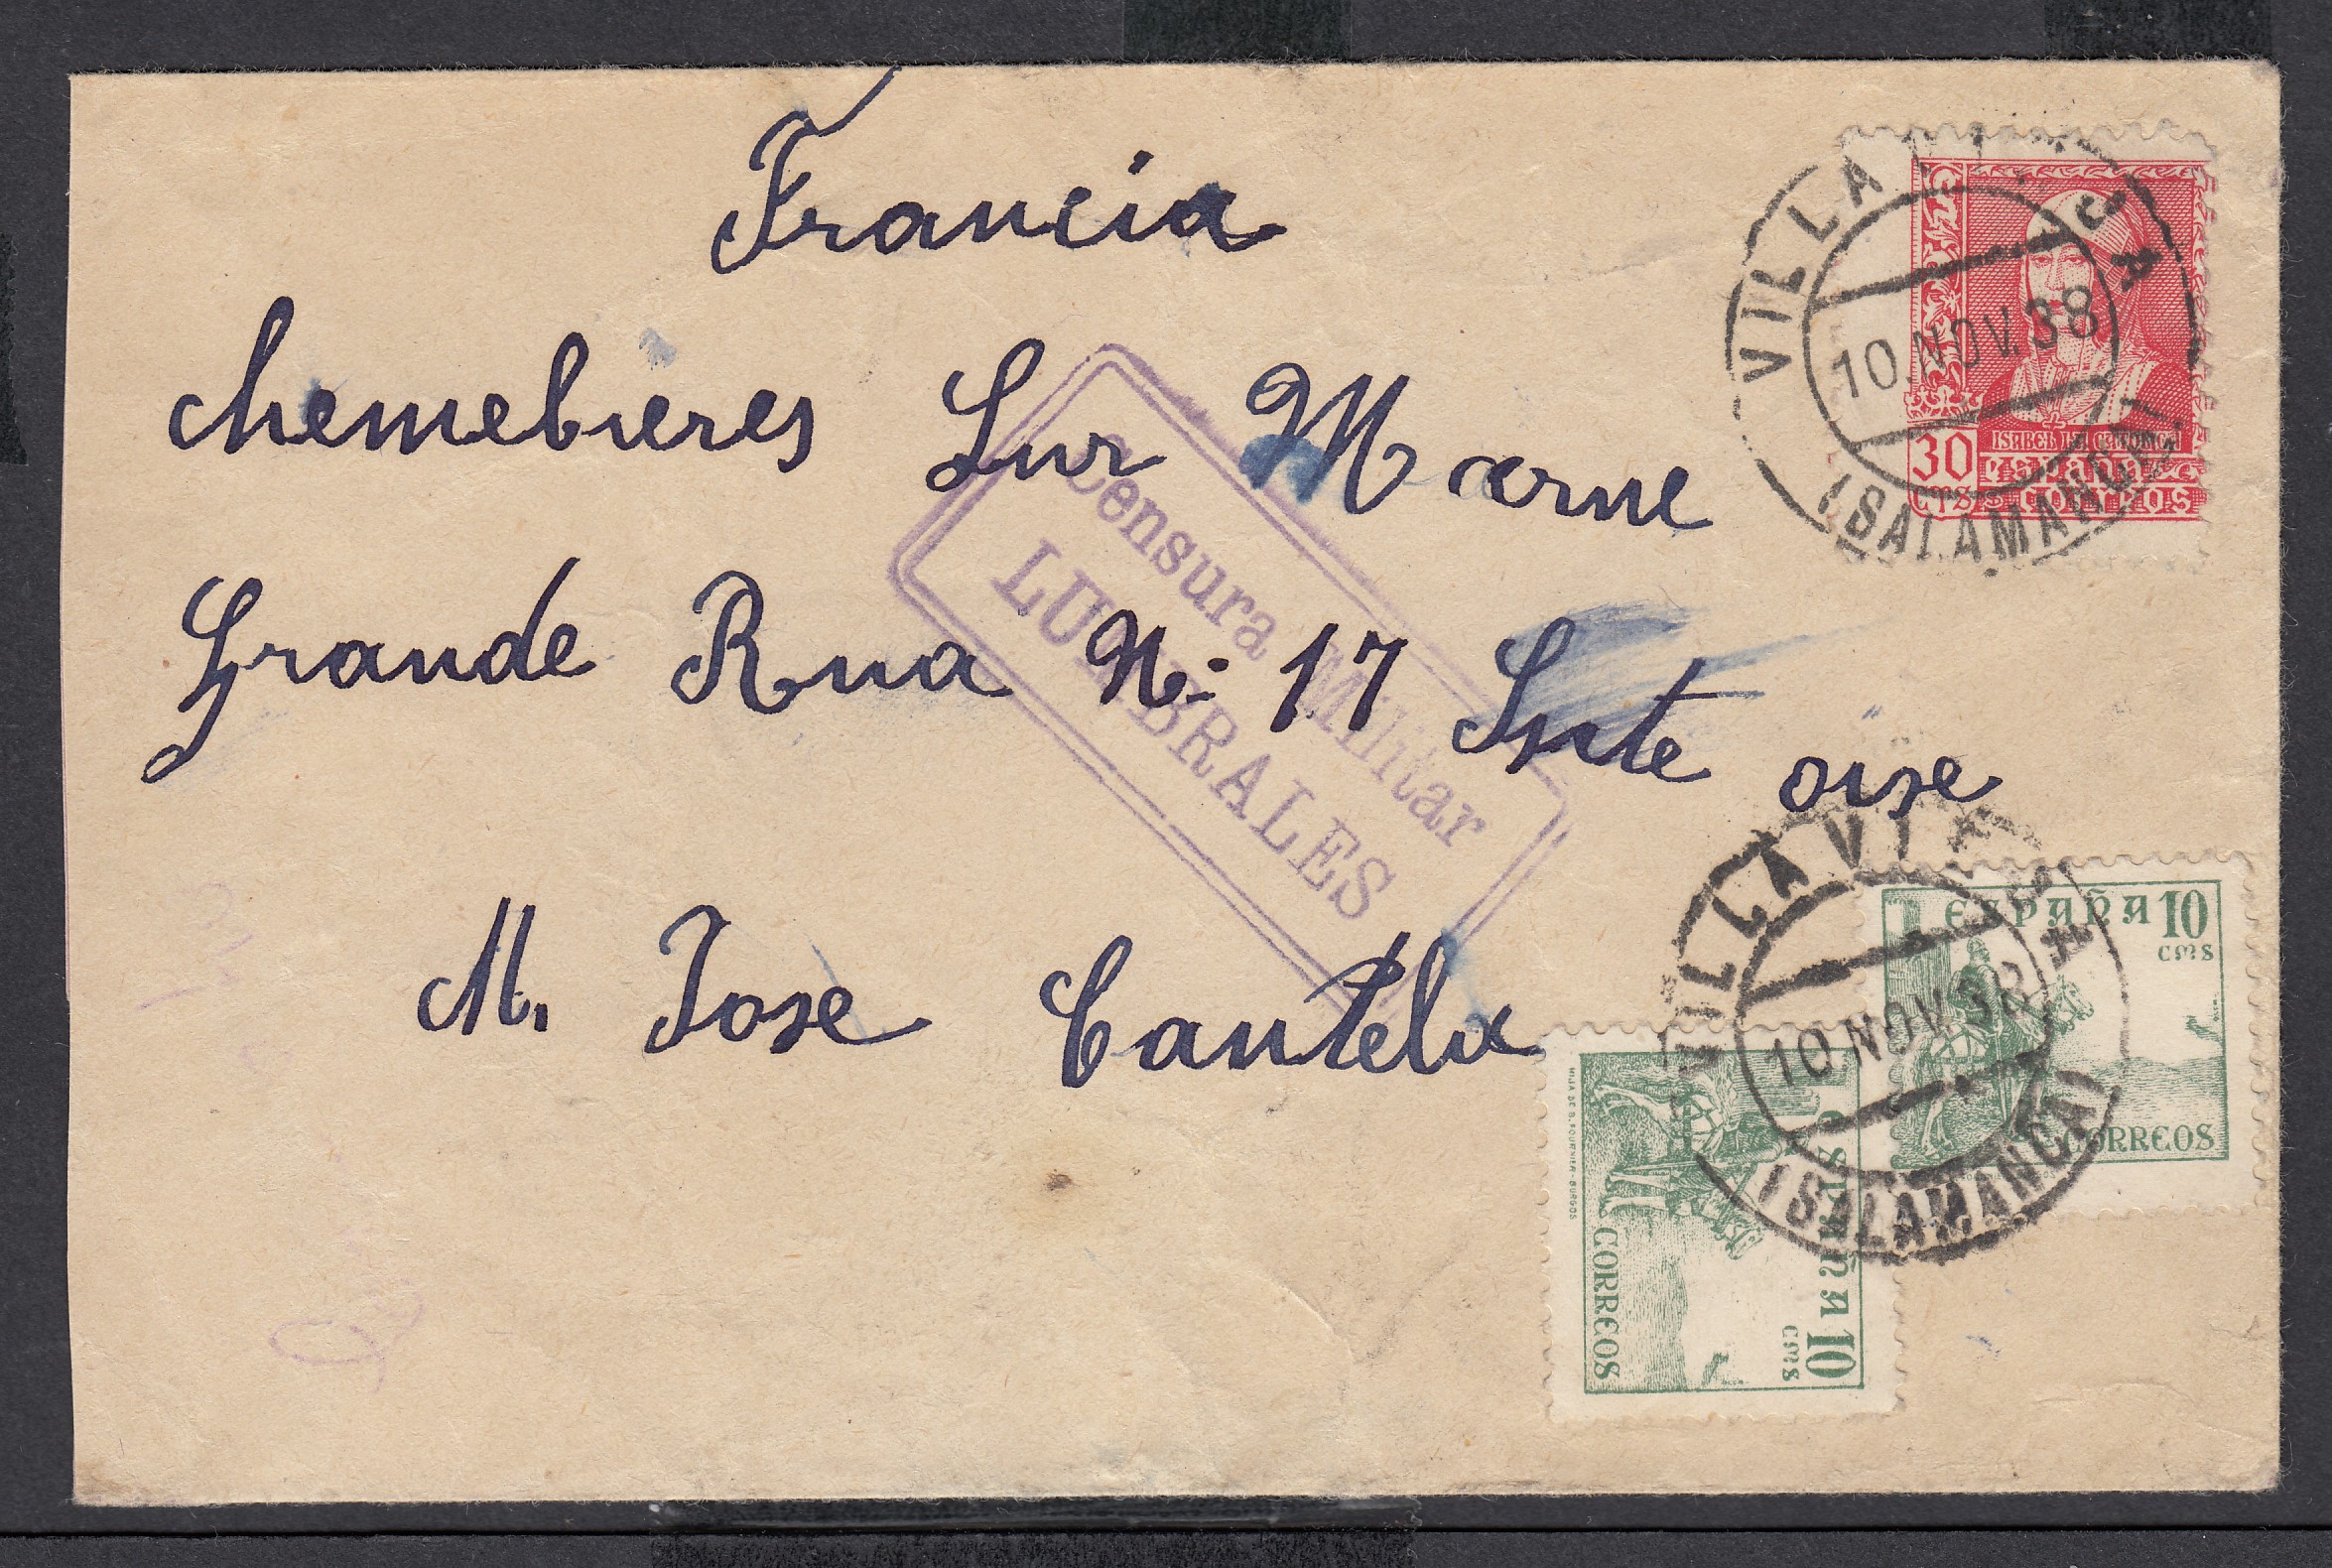 Francia
chemebieres Sur Marne
Grande Rua Nº 17 Snte oise
M. Jose Cantela
Censura Militar
LUMBRALES
10.NOV.38
(SALAMANCA)
30
CTMS
ISABEL LA CATOLICA
ESPAÑA
CORREOS
10.NOV.38
(SALAMANCA)
ESPAÑA 10
CMS
CORREOS
ESPAÑA 10
CMS
CORREOS
HIJA DE B. FOURNIER-BURGOS